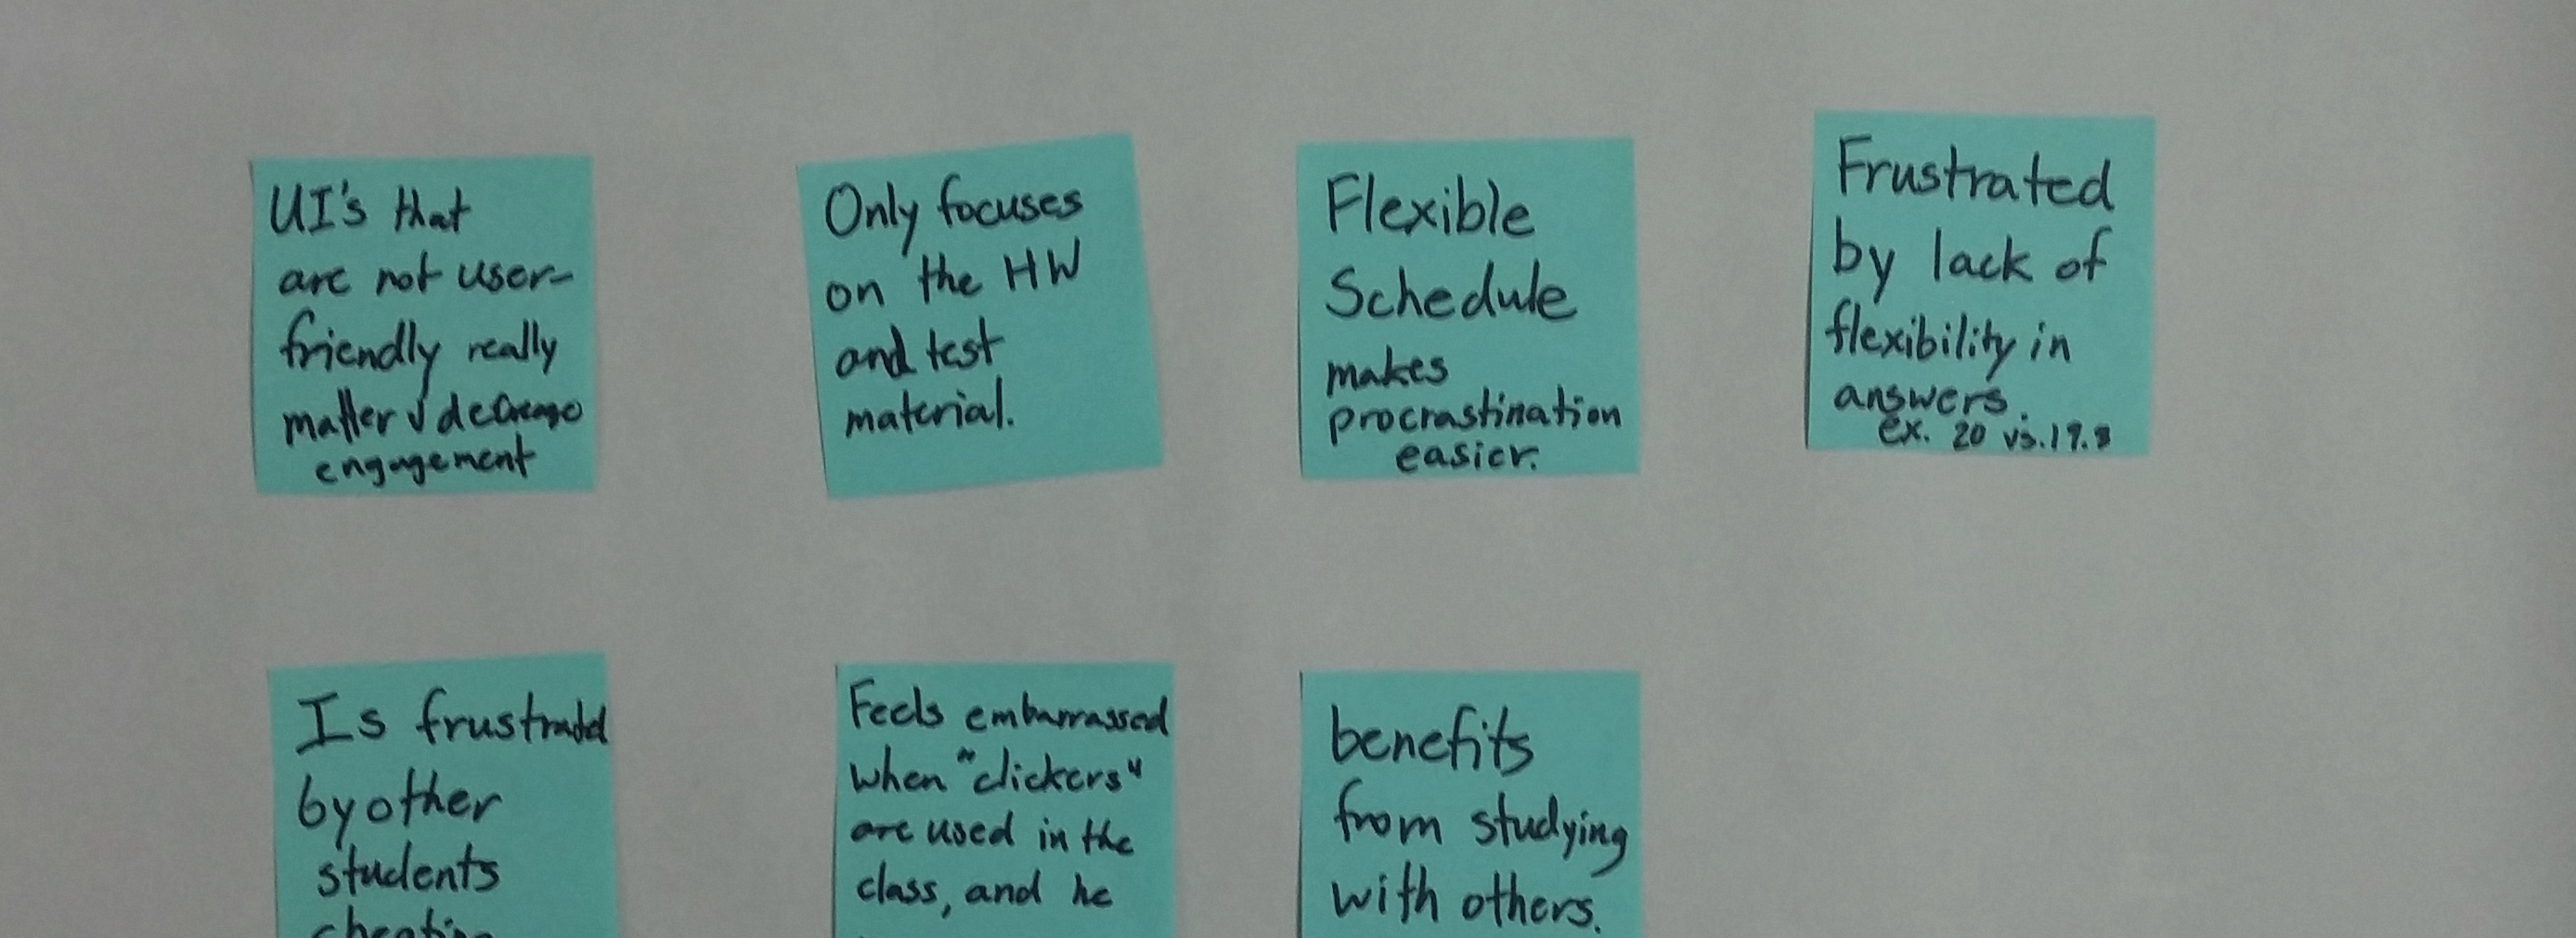 UI's that
are not user-
friendly really
matter & decrease
engagement
Only focuses
on the HW
and test
material.
Flexible
Schedule
makes
procrastination
easier.
Frustrated
by lack of
flexibility in
answers.
ex. 20 vs. 19.8
Is frustrated
by other
students
cheating
Feels embarrassed
when "clickers"
are used in the
class, and he
benefits
from studying
with others.